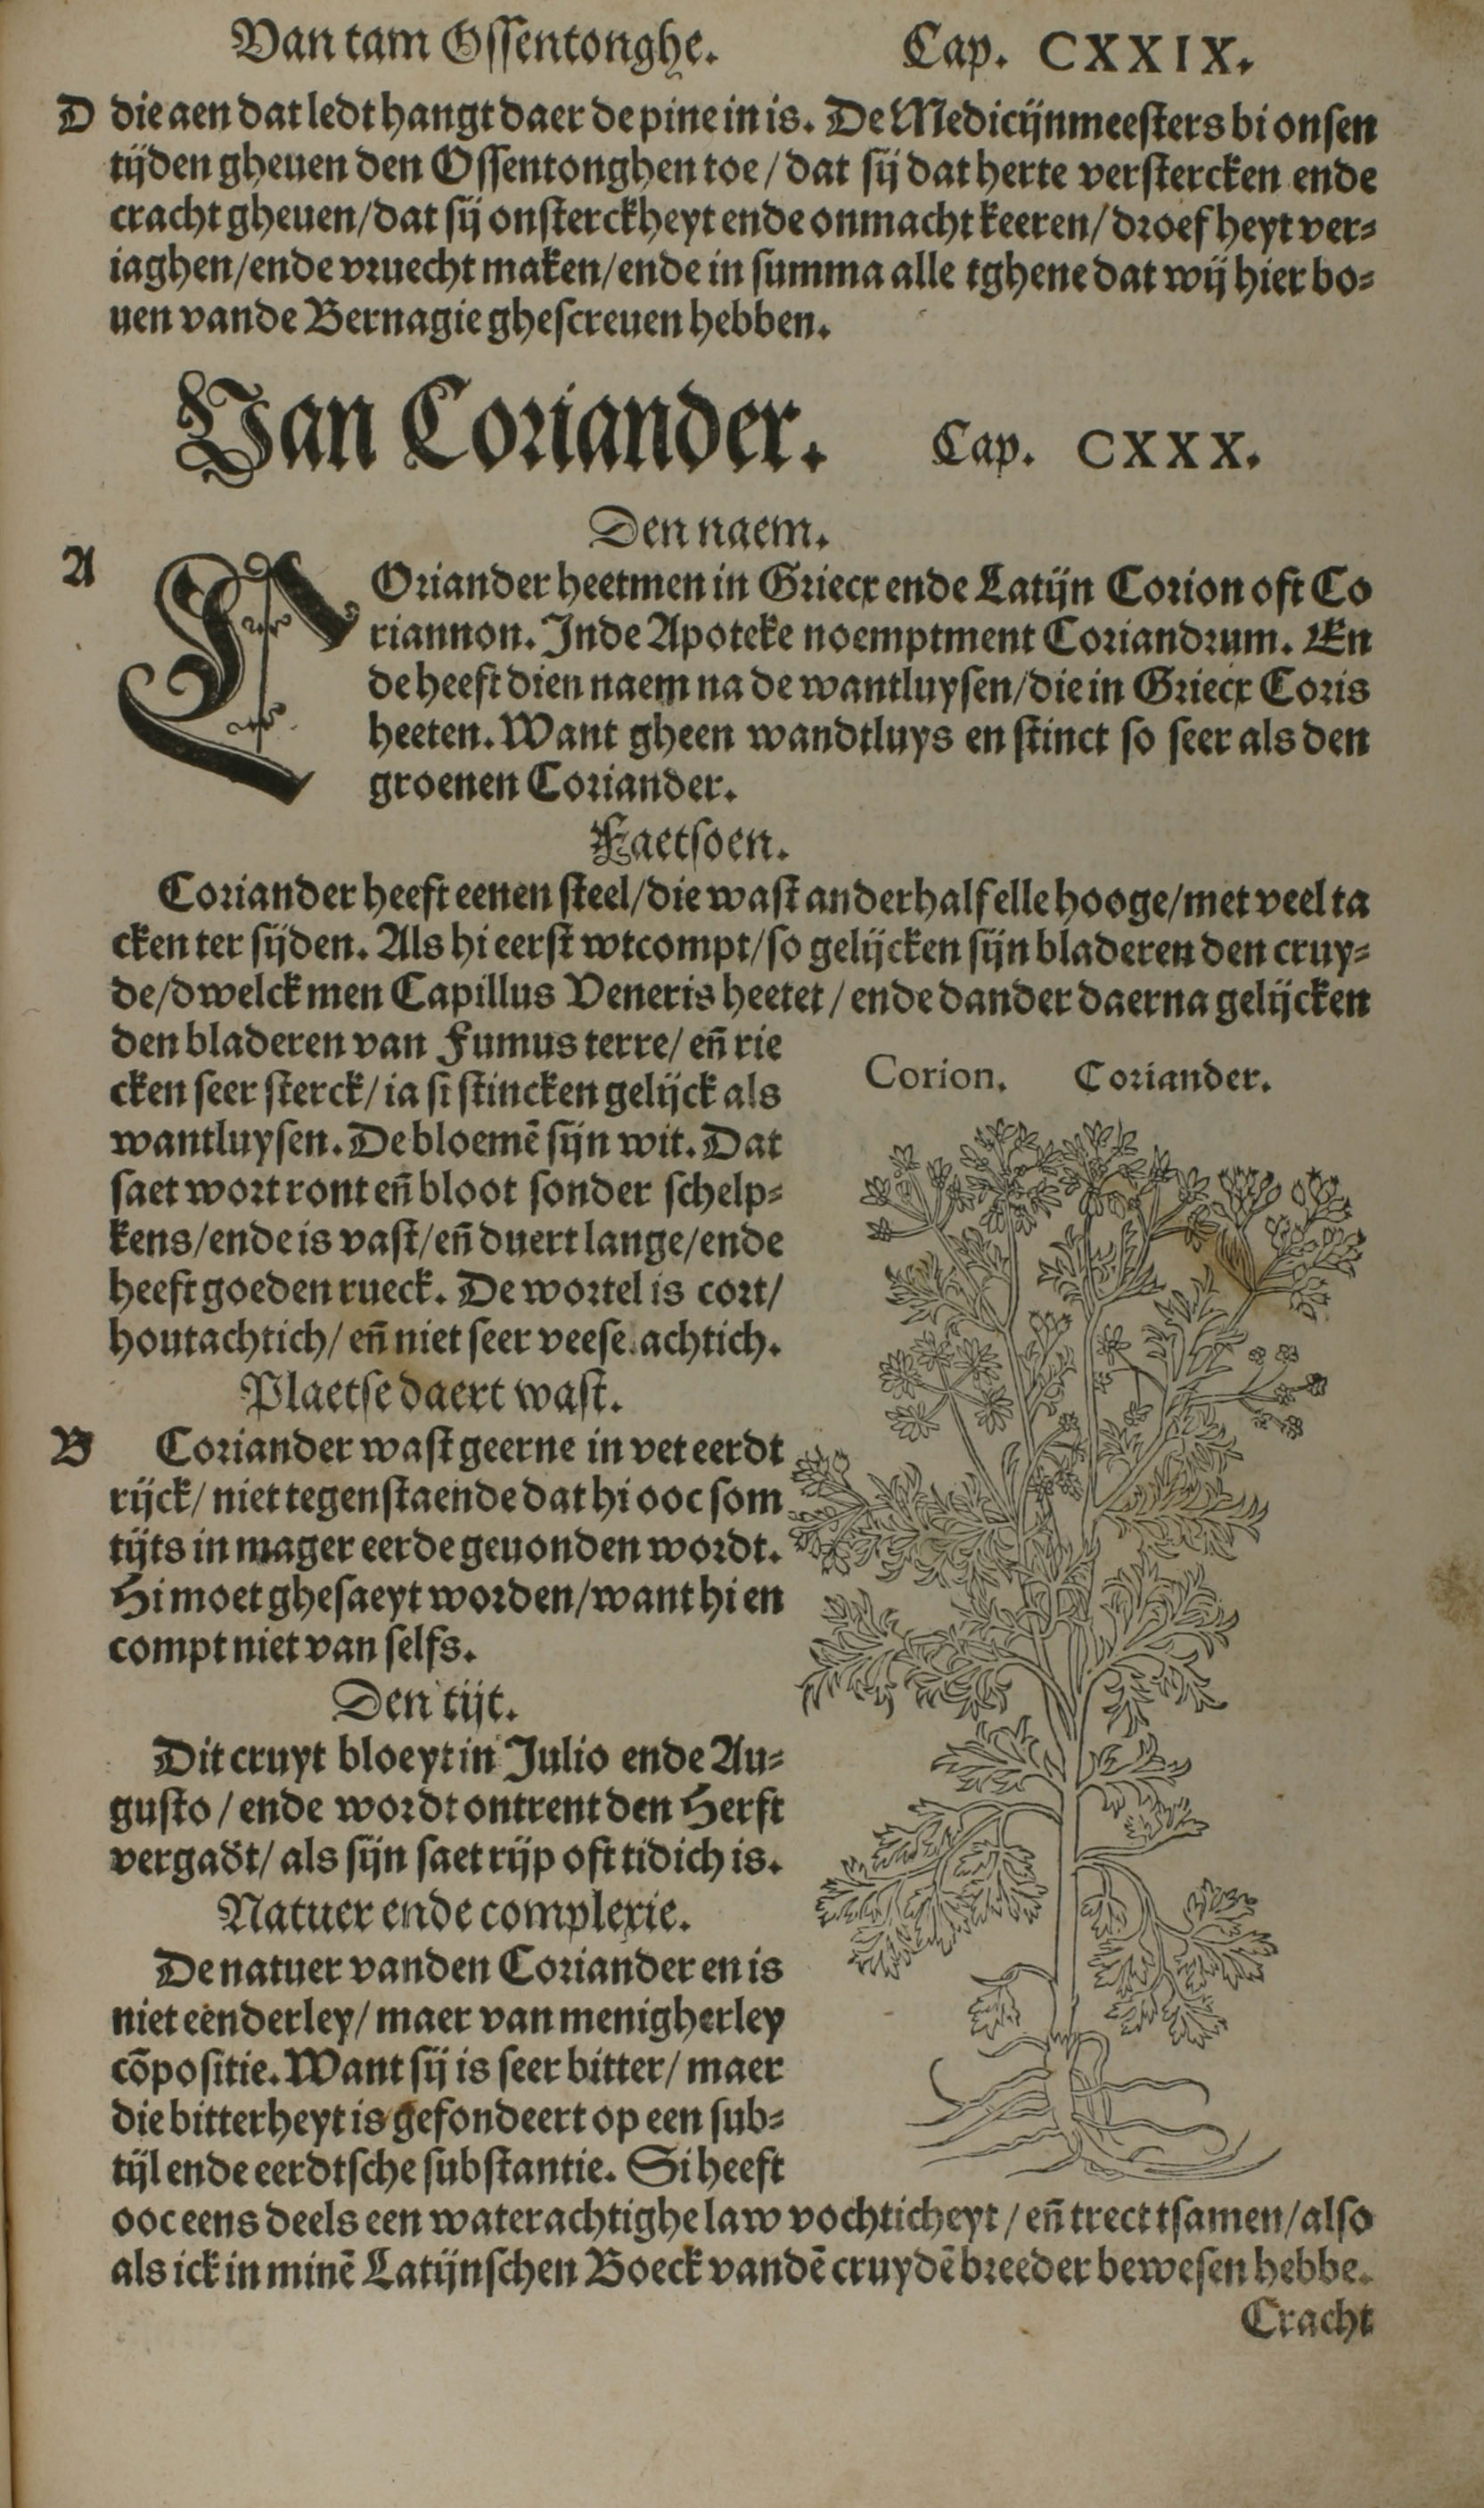 Van tam Ossentonghe. Cap. CXXIX.
D die aen dat ledt hangt daer de pine in is. De Medicijnmeesters bi onsen
tijden gheuen den Ossentonghen toe / dat sij dat herte verstercken ende
cracht gheuen / dat sij onsterckheyt ende onmacht keeren / droefheyt ver-
iaghen / ende vruecht maken / ende in summa alle tghene dat wij hier bo-
uen vande Bernagie ghescreuen hebben.
Van Coriander. Cap. CXXX.
Den naem.
A
COriander heetmen in Griecx ende Latijn Corion oft Co
riannon. Inde Apoteke noemptment Coriandrum. En
de heeft dien naem na de wantluysen / die in Griecx Coris
heeten. Want gheen wandtluys en stinct so seer als den
groenen Coriander.
Faetsoen.
Coriander heeft eenen steel / die wast anderhalf elle hooge / met veel ta
cken ter sijden. Als hi eerst wtcompt / so gelijcken sijn bladeren den cruy-
de / dwelck men Capillus Veneris heetet / ende dander daerna gelijcken
den bladeren van Fumus terre / eñ rie
cken seer sterck / ia si stincken gelijck als
wantluysen. De bloemē sijn wit. Dat
saet wort ront eñ bloot sonder schelp-
kens / ende is vast / eñ duert lange / ende
heeft goeden rueck. De wortel is cort /
houtachtich / eñ niet seer veeseachtich.
Corion. Coriander.
Plaetse daert wast.
B Coriander wast geerne in vet eerdt
rijck / niet tegenstaende dat hi ooc som
tijts in mager eerde geuonden wordt.
Hi moet ghesaeyt worden / want hi en
compt niet van selfs.
Den tijt.
Dit cruyt bloeyt in Julio ende Au-
gusto / ende wordt ontrent den Herfst
vergadt / als sijn saet rijp oft tidich is.
Natuer ende complexie.
De natuer vanden Coriander en is
niet eenderley / maer van menigherley
cōpositie. Want sij is seer bitter / maer
die bitterheyt is gefondeert op een sub-
tijl ende eerdtsche substantie. Si heeft
ooc eens deels een waterachtighe law vochticheyt / eñ trect tsamen / also
als ick in minē Latijnschen Boeck vandē cruydē breeder bewesen hebbe.
Cracht